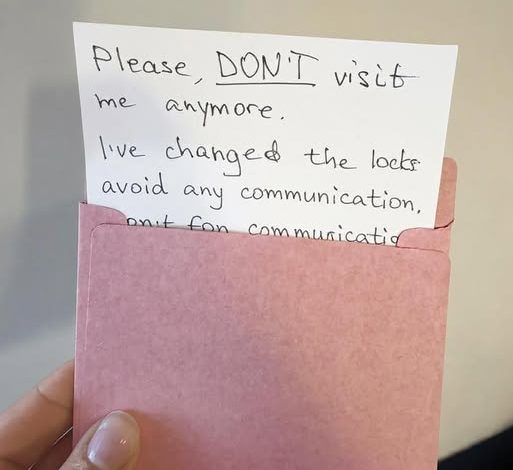 Please, DON'T visit
me anymore.
I've changed the locks
avoid any communication.
for communicatio